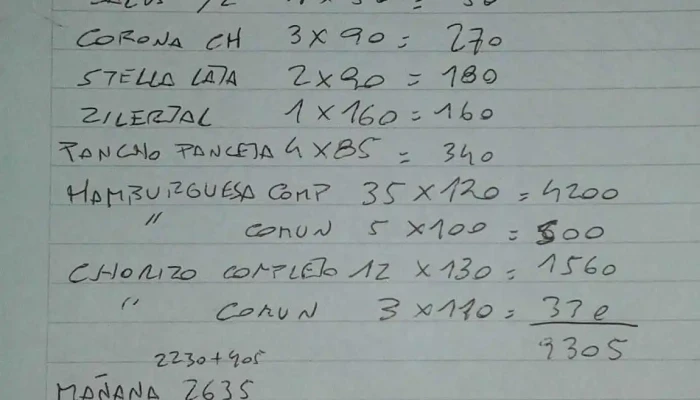 CORONA CH 3 x 90 = 270
STELLA LATA 2 x 90 = 180
ZILERTAL 1 x 160 = 160
PANCHO PANCETA 4 x 85 = 340
HAMBURGUESA COMP 35 x 120 = 4200
" COMUN 5 x 100 = 500
CHORIZO COMPLETO 12 x 130 = 1560
" COMUN 3 x 110 = 330
9305
2230+405
MAÑANA 2635